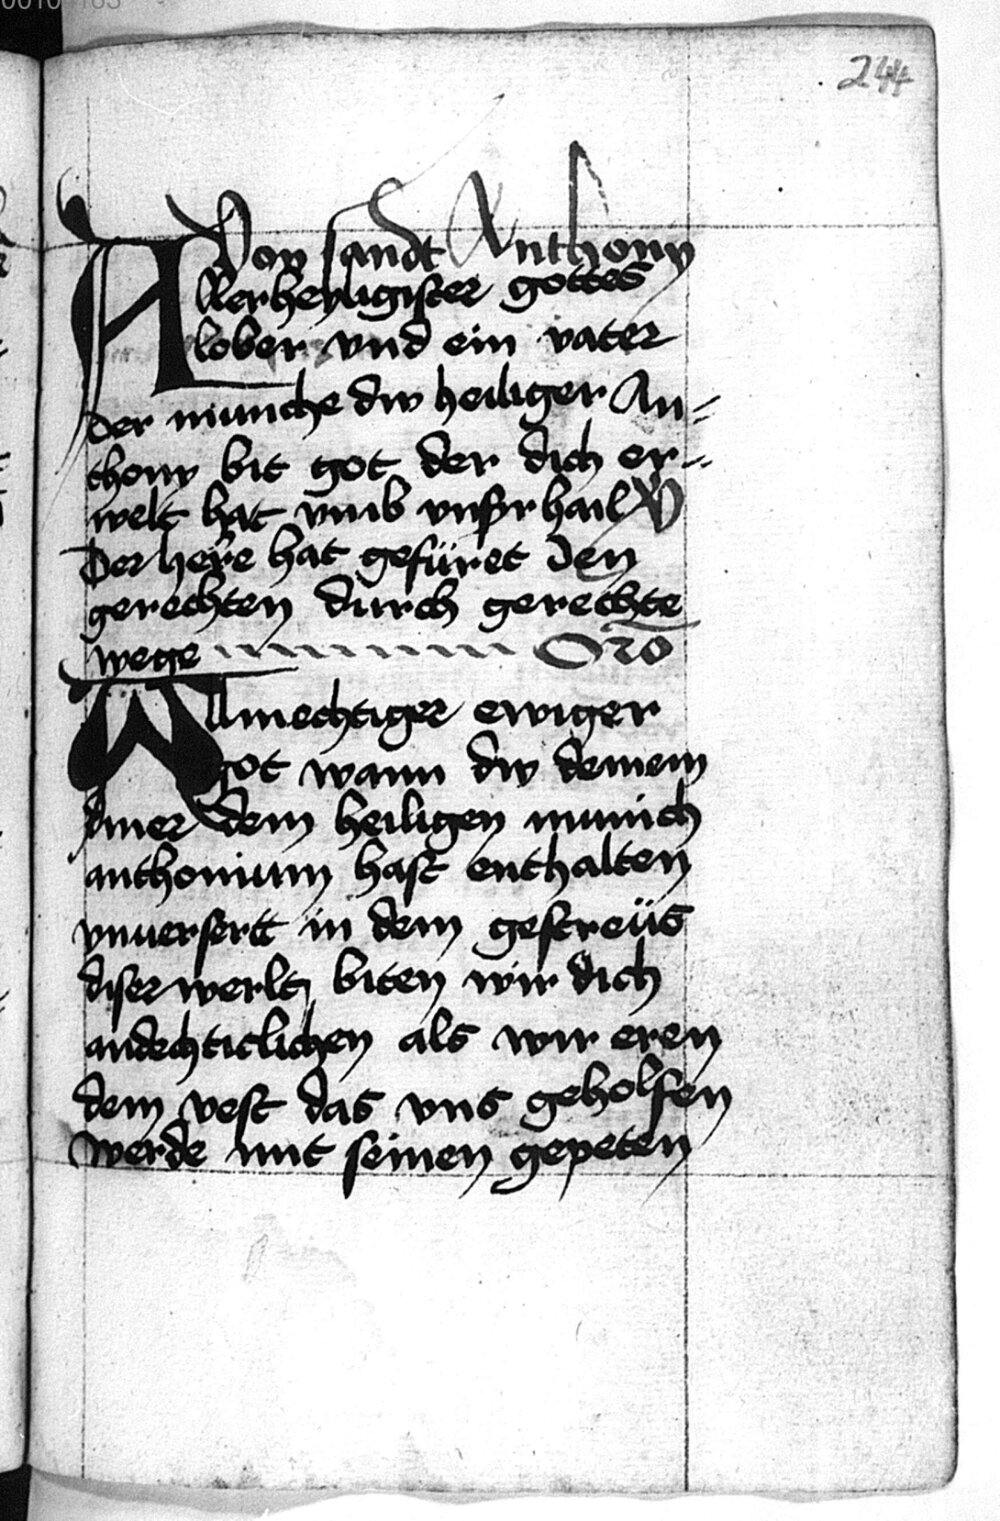 244
Von sandt Anthony
Allerheyligister gottes
lober vnd ein vater
der munche dw heiliger An=
thony bit got der dich er=
welt hat vmb vnßr hail V
Der here hat gefüret den
gerechten durch gerechte
wege Oro
Almechtiger ewiger
got wann dw deinem
diner dem heiligen munich
anthonium hast enthalten
vnuersertt in dem gestreüs
diser werlt biten wir dich
andechticlichen als wir eren
dem vest das vns geholfen
werde mit seinen gepeten